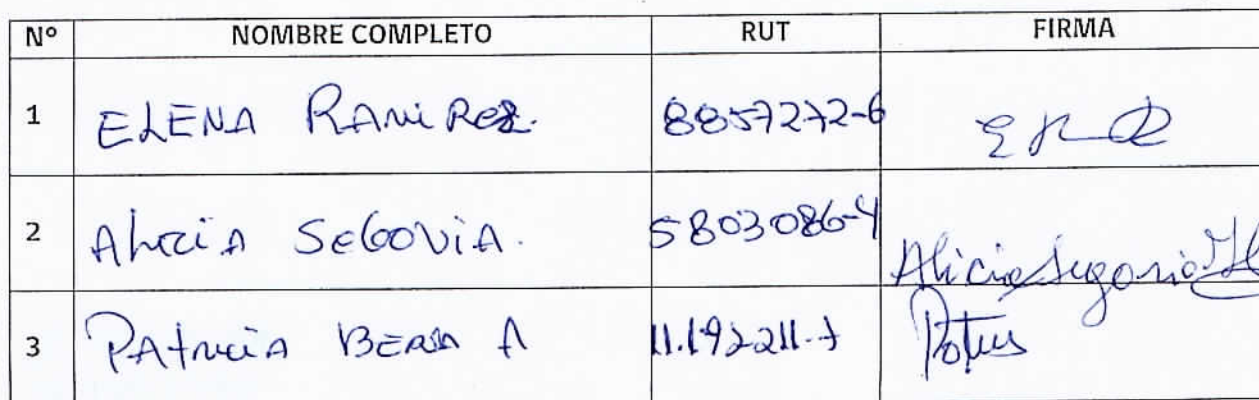 Nº NOMBRE COMPLETO RUT FIRMA
1 ELENA RAMIREZ. 8857272-6
2 ALICIA SEGOVIA. 5803086-4 Alicia Segovia
3 PATRICIA A 11.192211-7